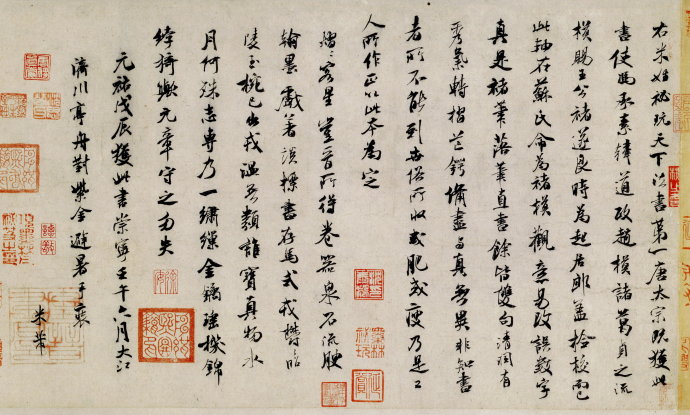 右米姓秘玩天下法書第一唐太宗既獲此
書使馮承素韓道政趙模諸葛貞之流
模賜王公褚遂良時為起居郎蓋檢校而已
此軸在蘇氏命為褚模觀意易改誤數字
真是褚筆落筆直書餘皆雙勾清潤有
秀氣轉摺芒鍔備盡與真無異非知書
者所不能到世俗所收或肥或瘦乃是工
人所作正以此本為定
熠熠客星豈晉所得養器泉石流腴
翰墨戲著談標書存馬式鬱鬱昭
陵玉椀已出戎溫無類誰寶真物水
月何殊志專乃一繡繅金鐍瑤機錦
綍猗歟元章守之勿失
元祐戊辰獲此書崇寧壬午六月大江
濟川亭舟對紫金避暑手裝
米芾